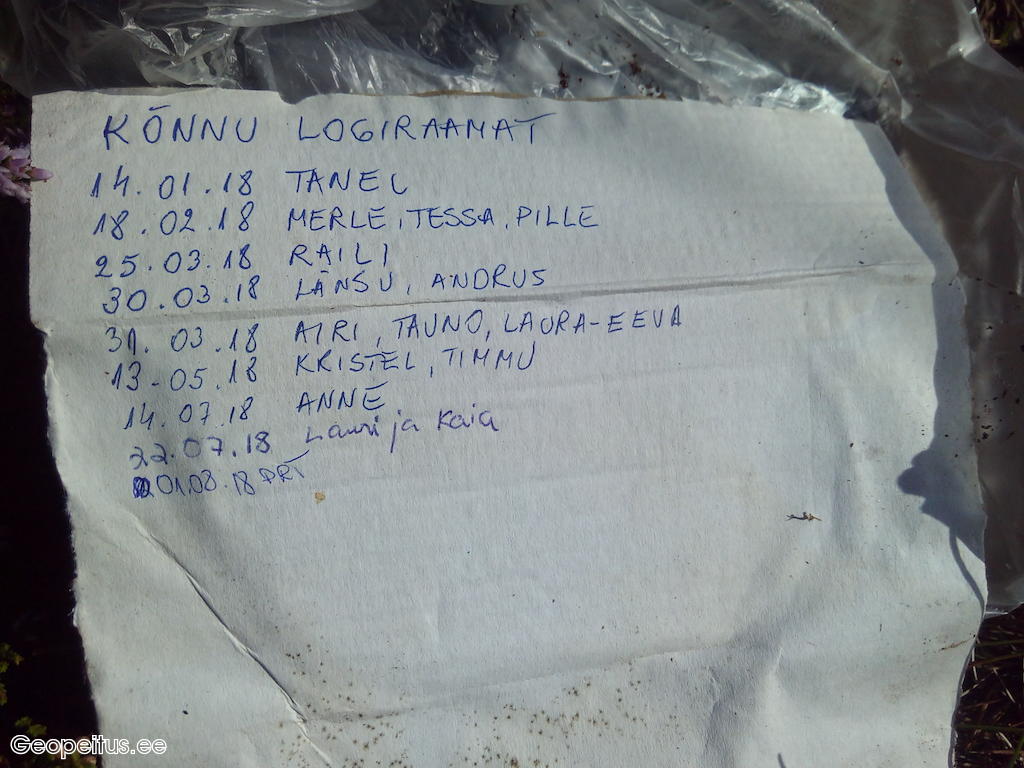 KÕNNU LOGIRAAMAT
14.01.18 TANEL
18.02.18 MERLE, TESSA, PILLE
25.03.18 RAILI
30.03.18 LÄNSU, ANDRUS
31.03.18 AIRI, TAUNO, LAURA-EEVA
13-05.18 KRISTEL, TIMMU
14.07.18 ANNE
22.07.18 Lauri ja Kaia
01.08.18 PRT
Geopeitus.ee